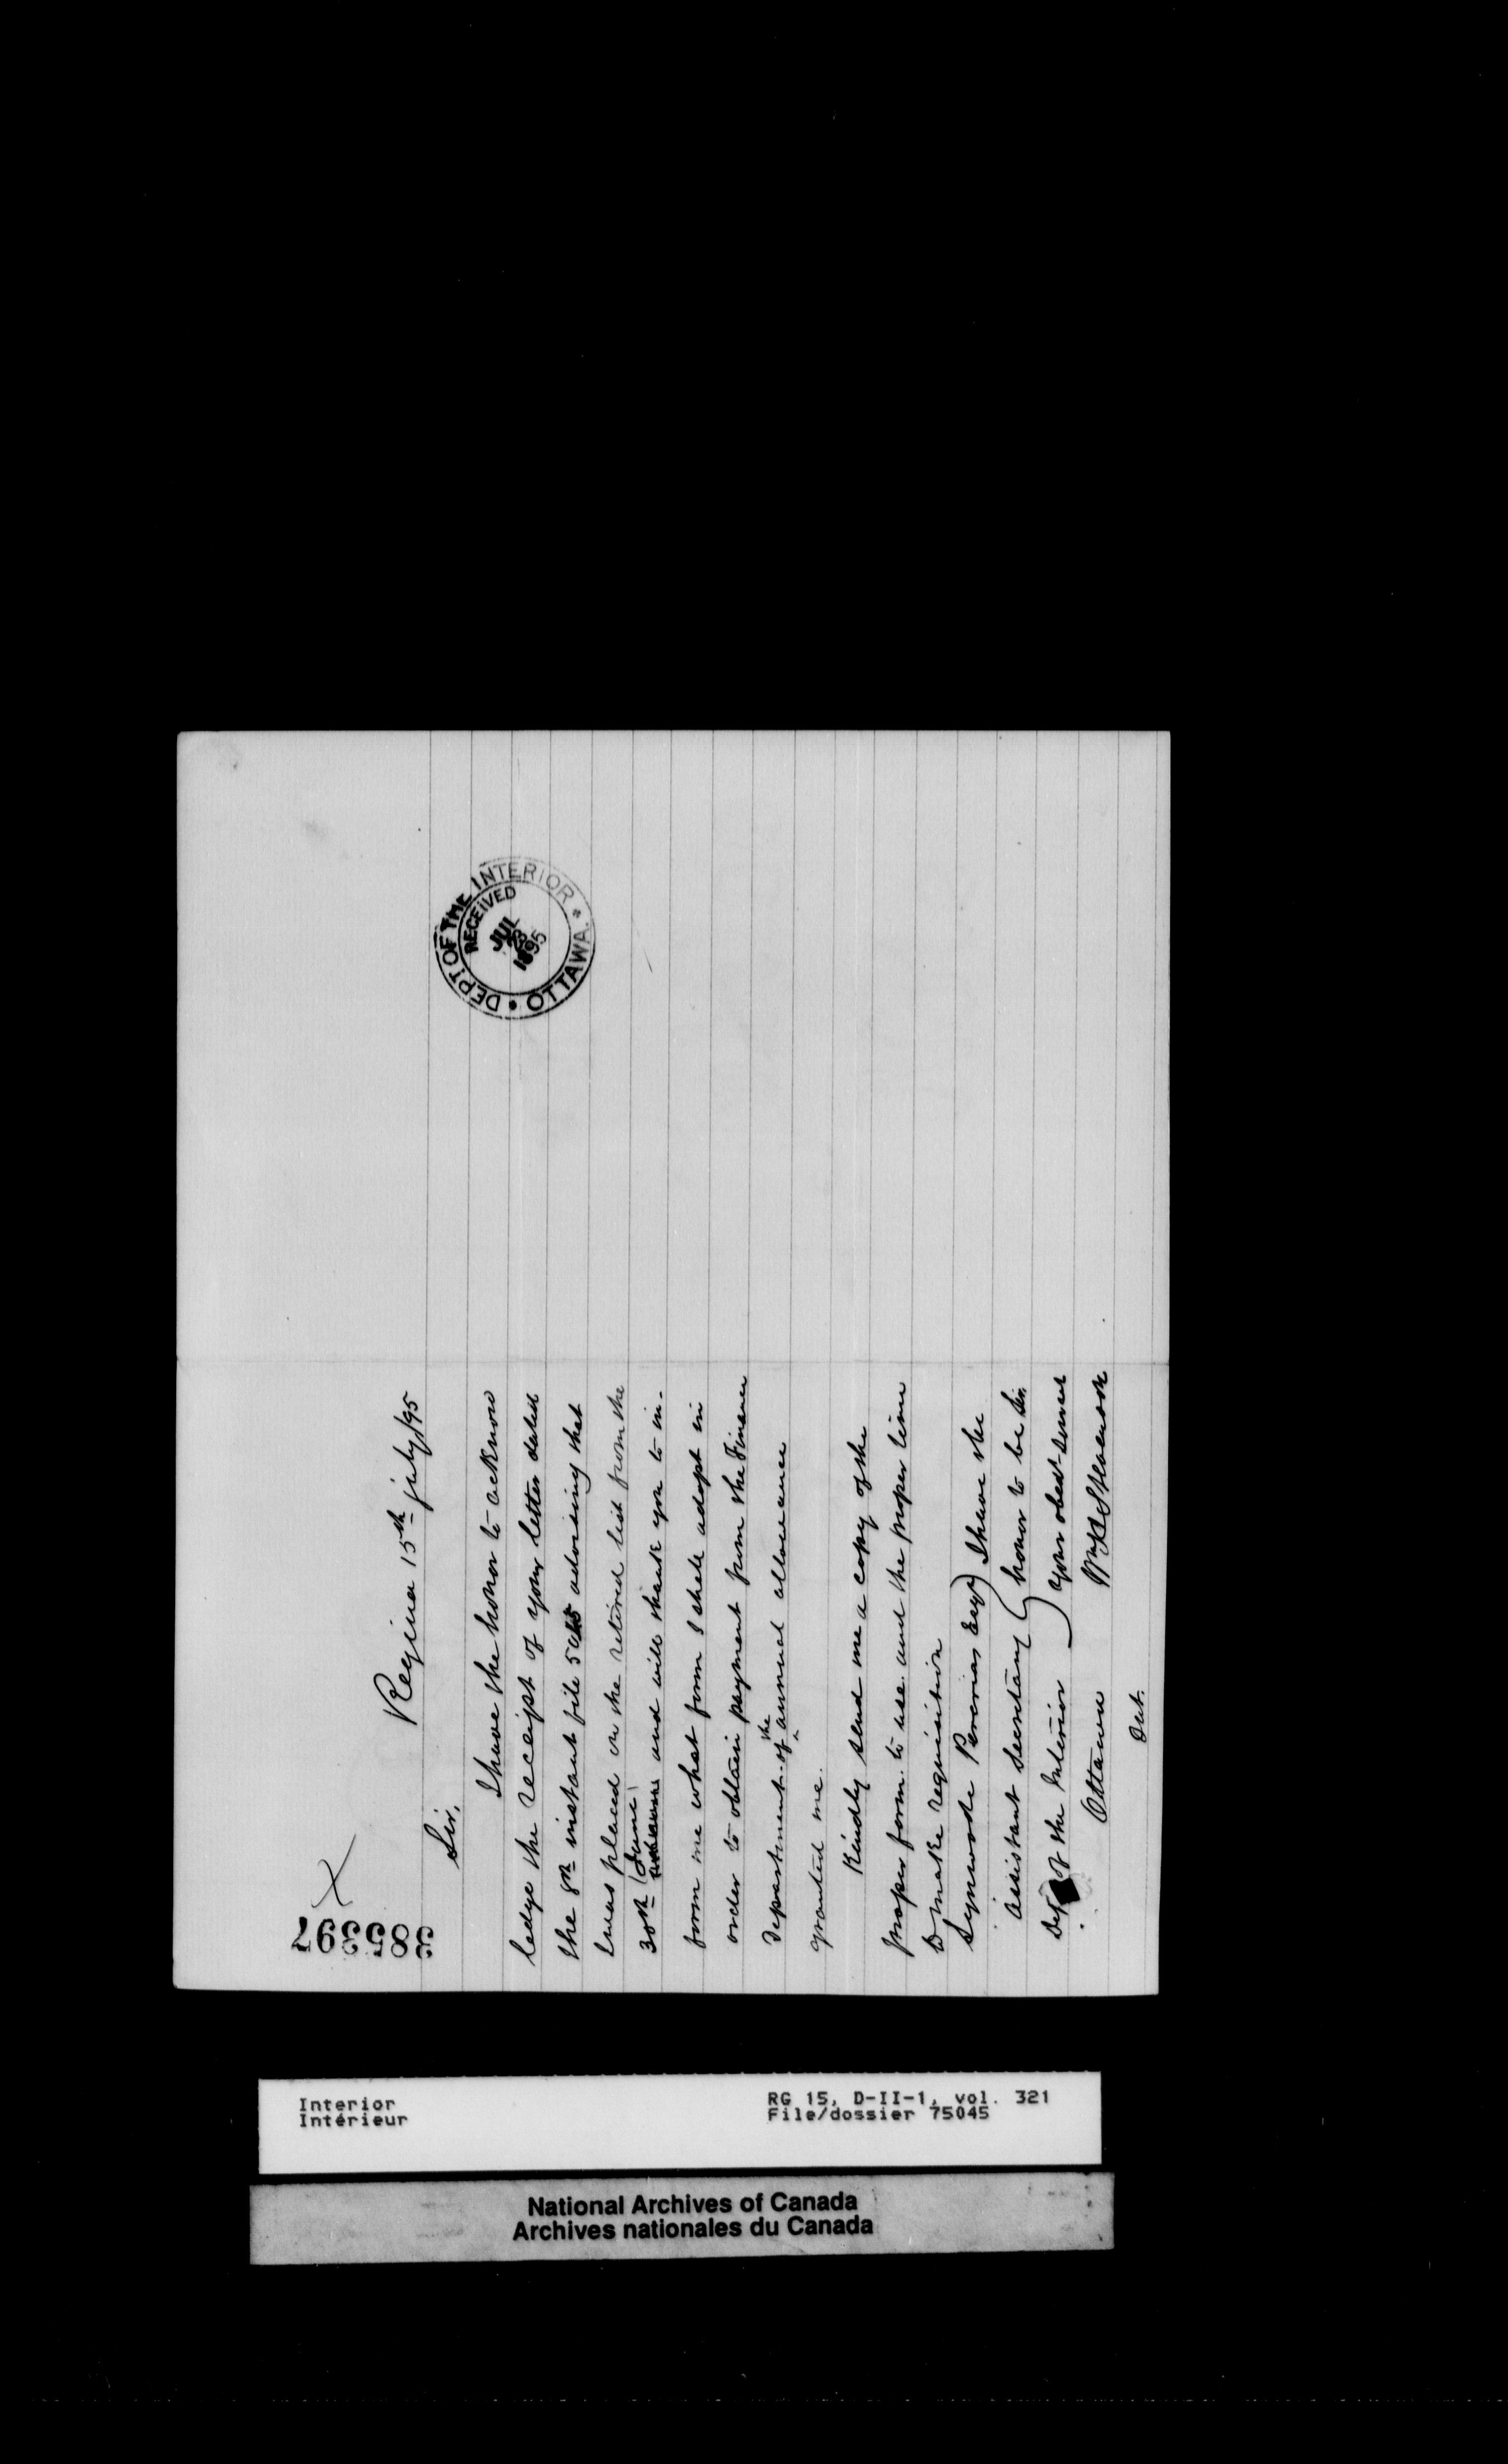 385397
Regina 15th july/95
Sir,
I have the honor to acknow
ledge the receipt of your letter dated
the 8th instant file advising that
I was placed on the retired list from the
30th June and will thank you to in-
form me what form I shall adopt in
order to obtain payment from the Finance
Department of the annual allowance
granted me.
Kindly send me a copy of the
proper form to use and the proper time
to make requisition
Lynwode Pereira Esqr I have the
Assistant Secretary honor to be Sir
Dep of the Interior Your obedt servant
Ottawa Wm H Stevenson
Ont.
DEPT OF THE INTERIOR * OTTAWA.
RECEIVED
JUL
23
1895
Interior
Intérieur
RG 15, D-II-1, vol. 321
File/dossier 75045
National Archives of Canada
Archives nationales du Canada